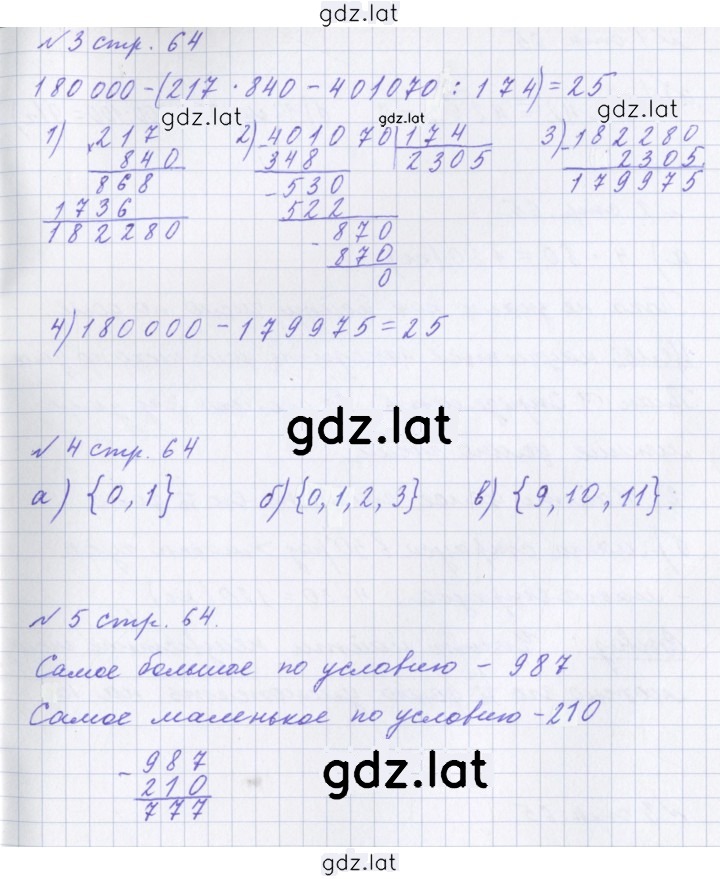 gdz.lat
№3 стр. 64
180000-(217·840-401070:174)=25
gdz.lat gdz.lat gdz.lat
1) 217 2) 401070 | 174 3) 182280
× 840 - 348 2305 - 2305
868 - 530 179975
1736 522
182280 - 870
870
0
4) 180000-179975=25
gdz.lat
№4 стр. 64
а) {0,1} б) {0,1,2,3} в) {9,10,11}.
№5 стр. 64.
Самое большое по условию - 987
Самое маленькое по условию - 210
- 987
210
777
gdz.lat
gdz.lat